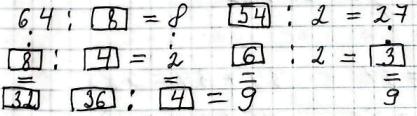 64 : 8 = 8 54 : 2 = 27
: : : :
8 : 4 = 2 6 : 2 = 3
= = = =
32 36 : 4 = 9 9